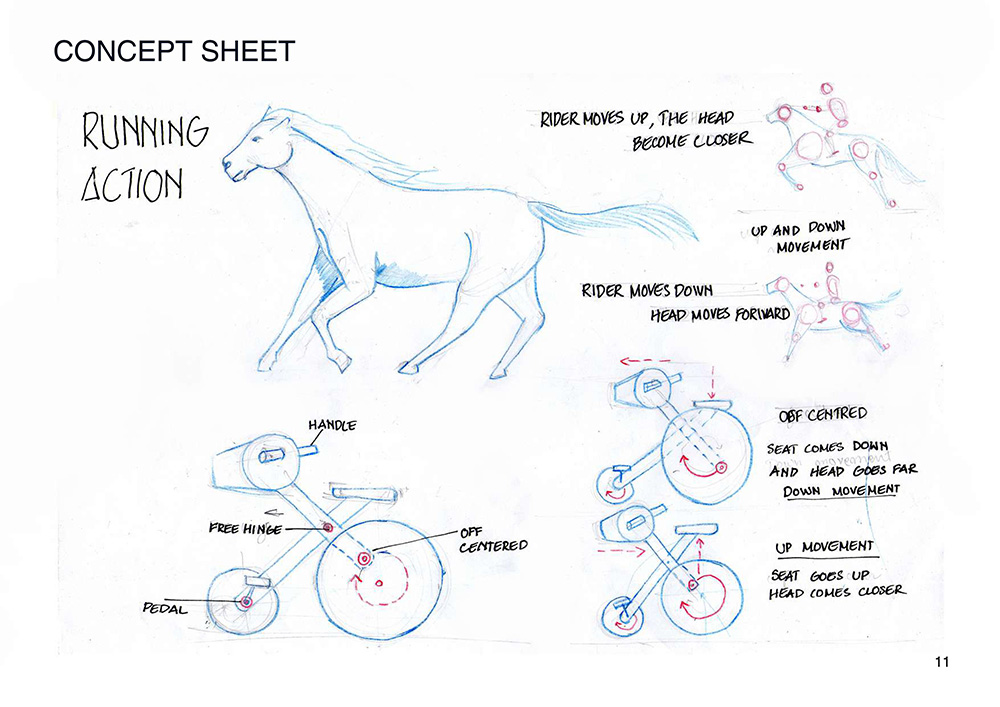 CONCEPT SHEET
RUNNING
ACTION
RIDER MOVES UP, THE HEAD
BECOME CLOSER
UP AND DOWN
MOVEMENT
RIDER MOVES DOWN
HEAD MOVES FORWARD
HANDLE
FREE HINGE
OFF
CENTERED
PEDAL
OFF CENTRED
SEAT COMES DOWN
AND HEAD GOES FAR
DOWN MOVEMENT
UP MOVEMENT
SEAT GOES UP
HEAD COMES CLOSER
11